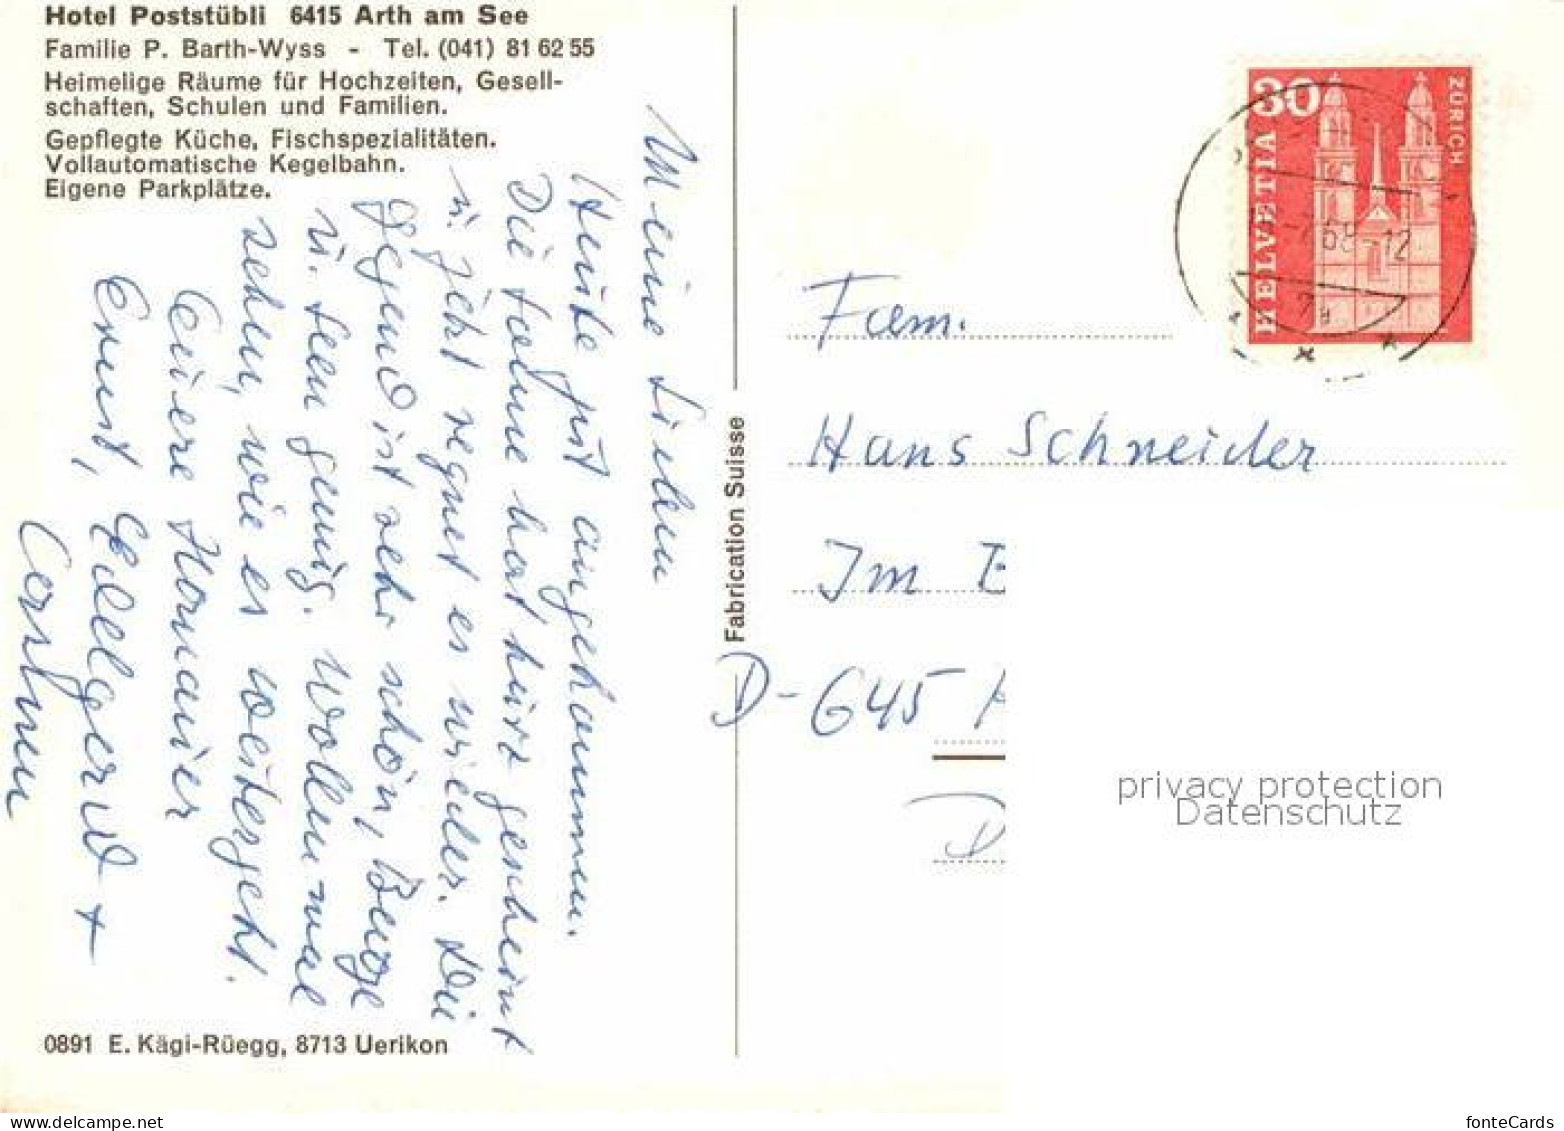 Hotel Poststübli 6415 Arth am See
Familie P. Barth-Wyss - Tel. (041) 81 62 55
Heimelige Räume für Hochzeiten, Gesell-
schaften, Schulen und Familien.
Gepflegte Küche, Fischspezialitäten.
Vollautomatische Kegelbahn.
Eigene Parkplätze.
Meine Lieben
Heute gut angekommen.
Die Sonne hat kurz gescheint
u. jetzt regnet es wieder. Die
Gegend ist sehr schön, Berge
u. Seen genug. Wollen mal
sehen, wie es weitergeht.
Euere
Ernst, Edelgard +
0891 E. Kägi-Rüegg, 8713 Uerikon
Fabrication Suisse
30
HELVETIA
ZÜRICH
68-12
Fam.
Hans Schneider
Im
D-645
D
privacy protection
Datenschutz
fonteCards